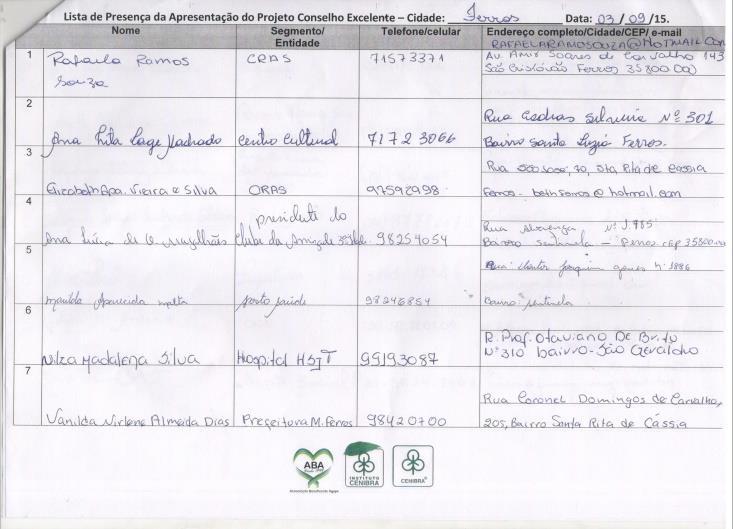 Lista de Presença da Apresentação do Projeto Conselho Excelente – Cidade: Ferros Data: 03/09/15.
Nome Segmento/ Entidade Telefone/celular Endereço completo/Cidade/CEP/ e-mail
RAFAELARAMOSOUZA@HOTMAIL.COM
1 Rafaela Ramos Souza CRAS 71573371 Av. Amir Soares de Carvalho 143
São Cristóvão Ferros 35800 000
2 Ana Rita Lage Machado Centro Cultural 7172 3066 Rua Nº 301
Bairro Santa Luzia Ferros.
3 Elizabeth Apa. Vieira e Silva CRAS 97592998 Rua São José, 70, Sta Rita de Cassia
Ferros - bethferros@hotmail.com
4 Ana de Magalhães presidente do Clube da Amizade 98254054 Rua Nº 1.985
Bairro Sentinela - Ferros cep 35800.000
5 Aparecida posto saúde 98246854 Rua Joaquim nº 1886
Bairro Sentinela
6 Nilza Madalena Silva Hospital HSJT 99193087 R. Prof. Otaviano De Brito
Nº 310 bairro - São Geraldo
7 Vanilda Nirlene Almeida Dias Prefeitura M. Ferros 98420700 Rua Coronel Domingos de Carvalho,
205, Bairro Santa Rita de Cássia
ABA
Associação Beneficente Ágape
INSTITUTO CENIBRA
CENIBRA